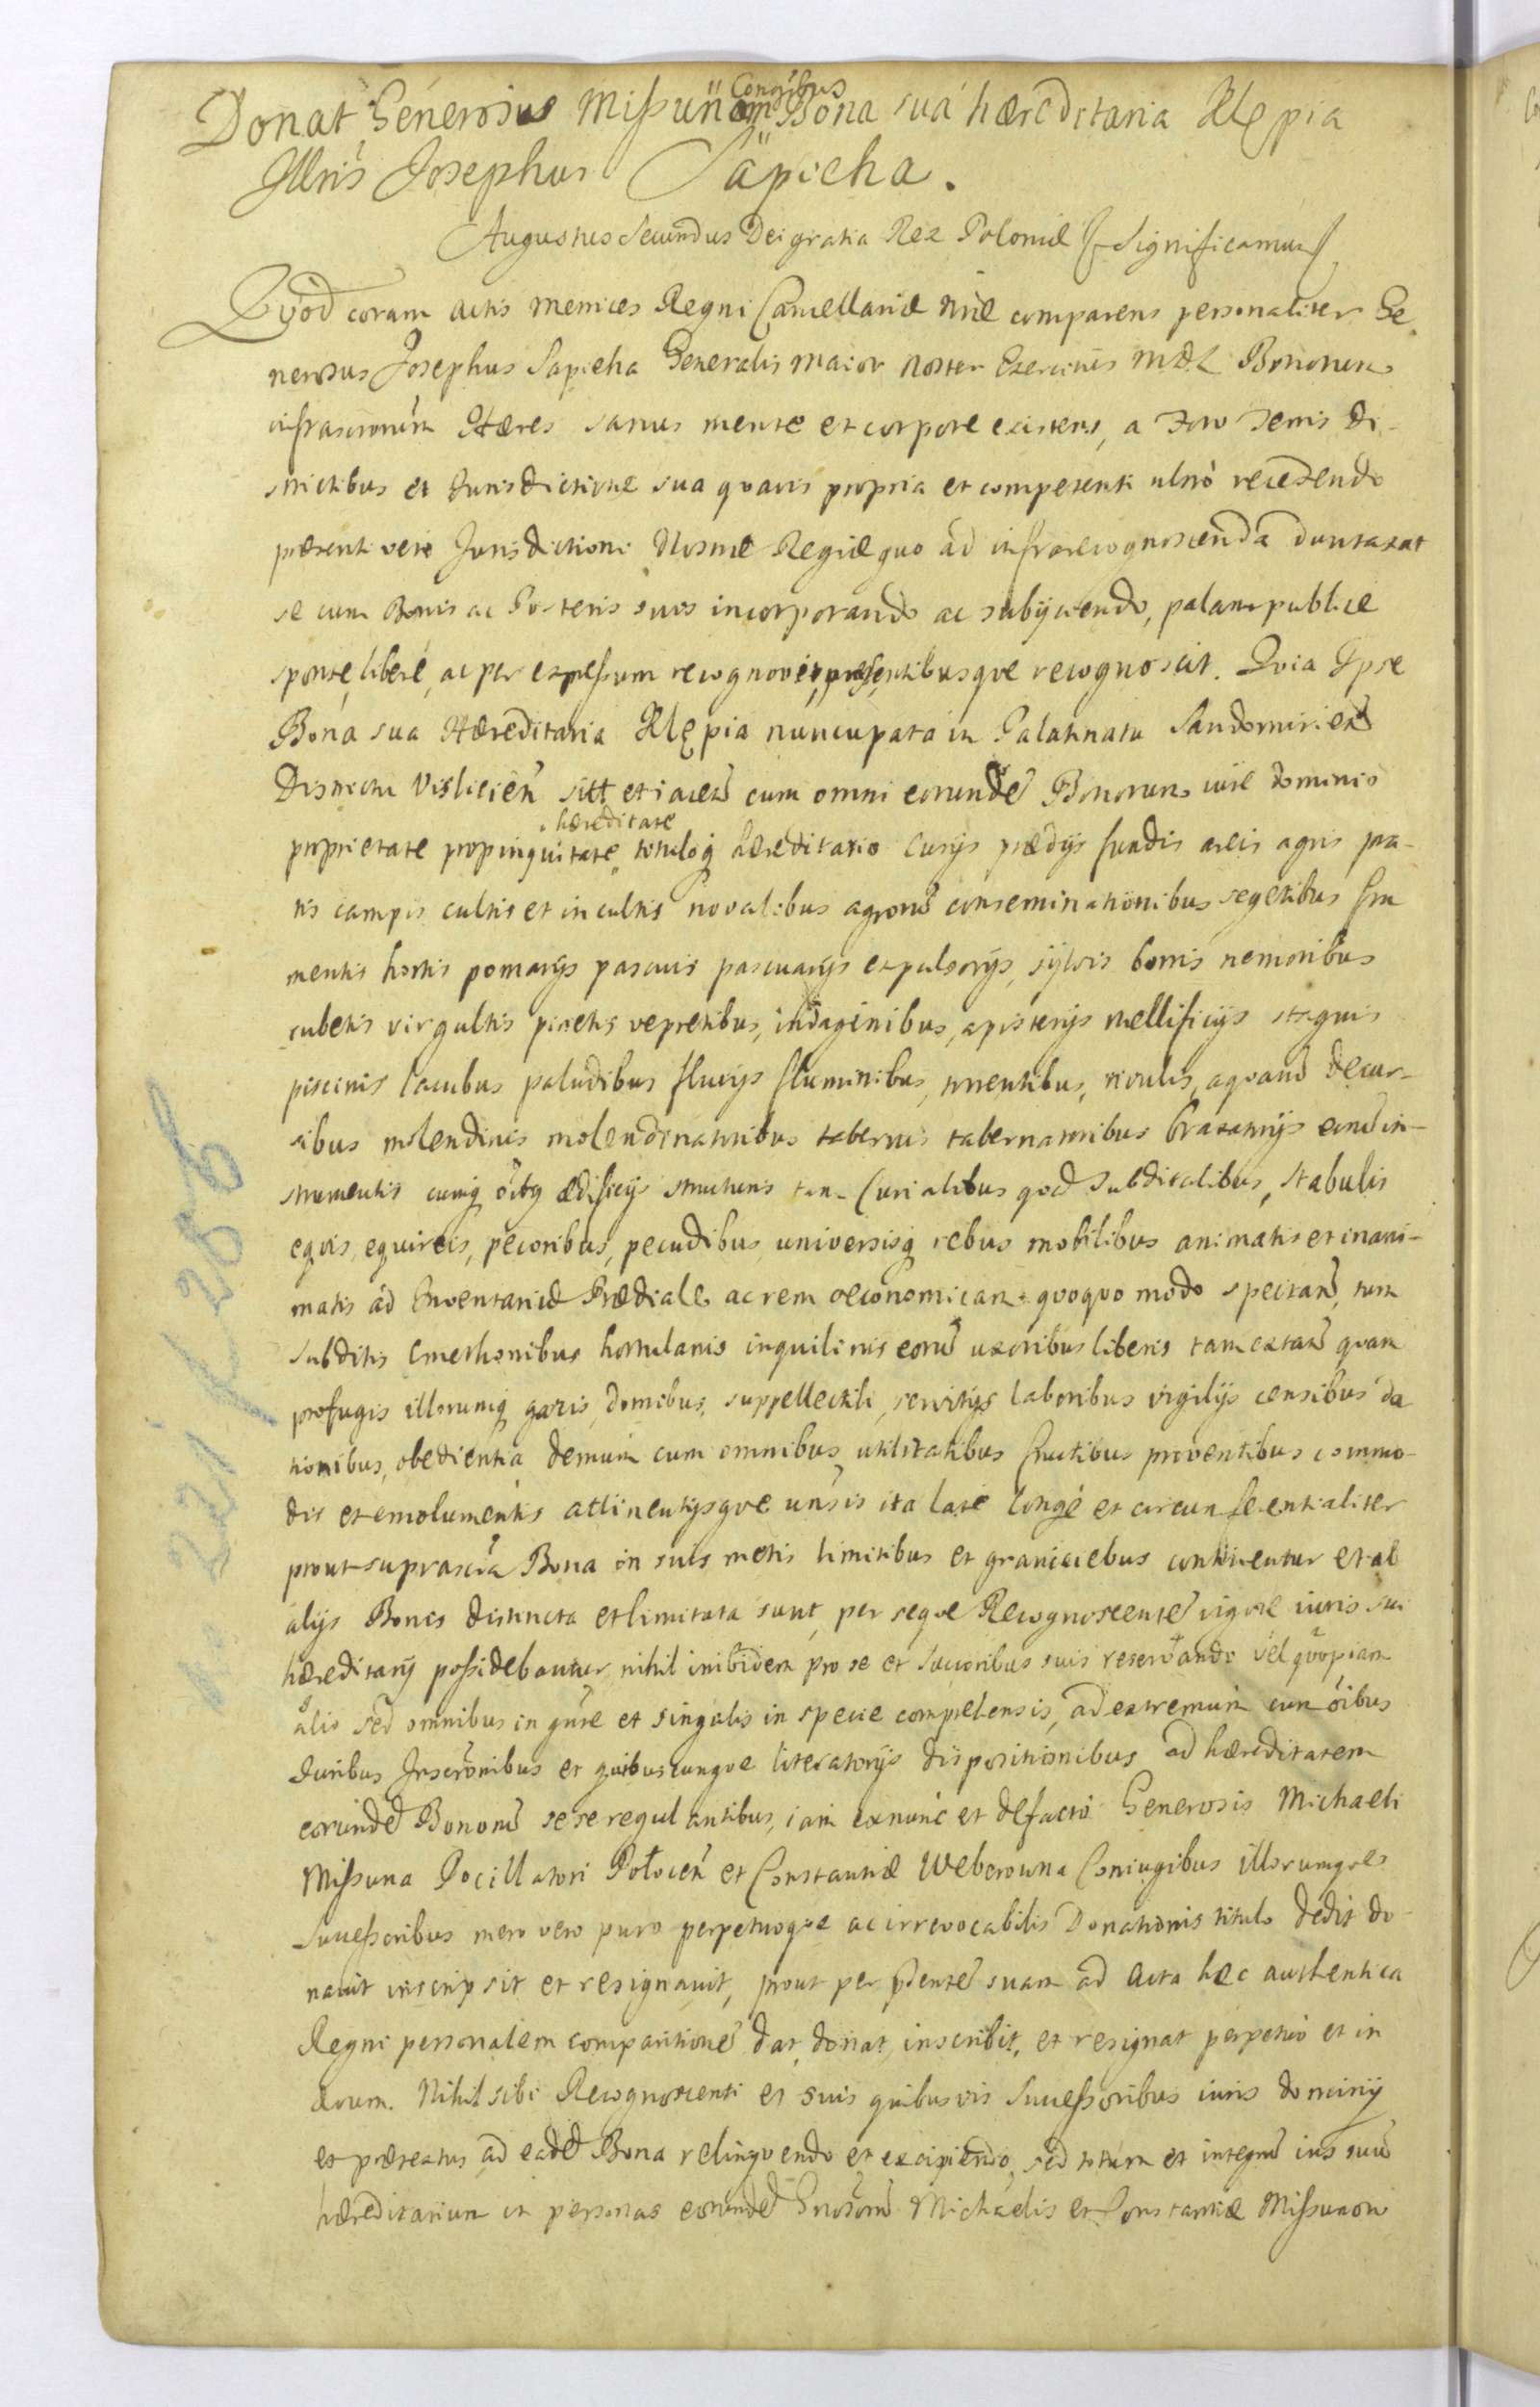 Donat Generosus Missunom Coniugibus Bona sua hæreditaria Klępia
Illris Josephus Sapieha.
Augustus Secundus Dei gratia Rex Poloniæ Significamus
Quod coram Actis Metrices Regni Cancellariæ Nræ comparens personaliter Ge
nerosus Josephus Sapieha Generalis Maior Noster Exercitus M.D.L. Bonorum
infrascriptorum Hæres sanus mente et corpore existens, a Foro Terris Di-
strictibus et Jurisdictione sua quavis propria et competenti ultrò recedendo
præsenti vero Jurisdictioni Nostræ Regiæ quo ad infrarecognoscenda duntaxat
se cum Bonis ac Posteris suis incorporando ac subijciendo, palam publice
sponte, liberè, ac per expressum recognovit, præsentibusque recognoscit. Quia Ipse
Bona sua Hæreditaria Klępia nuncupata in Palatinatu Sandomirien̄
Districtu Vislicień sitt et iacen̄ cum omni eorunde Bonorum iure dominio
hæreditate
proprietate propinquitate tituloq hæreditario Curijs prædijs fundis areis agris pra-
tis campis cultis et incultis novalibus agrorū conseminationibus segetibus fru
mentis hortis pomarijs pascuis pascuarijs expulsorijs, sylvis borris nemoribus
rubetis virgultis pinetis vepretibus, indaginibus, apisterijs mellificijs stagnis
piscinis lacubus paludibus fluvijs fluminibus, torrentibus, rivulis, aquarū decur-
sibus molendinis molendinatoribus tabernis tabernatoribus braxatorijs eorū in-
strumentis cumq oibq ædificijs structuris tam Curialibus quā Subditalibus, stabulis
equis, equireis, pecoribus, pecudibus universisq rebus mobilibus animatis et inani-
matis ad Inventariū Prædiale ac rem oeconomicam quoquo modo spectan̄, tum
subditis Cmethonibus hortulanis inquilinis eorū uxoribus liberis tam extan̄ quam
profugis illorumq gazis, domibus, suppellectili, servitijs laboribus vigilijs censibus da
tionibus, obedientia demum cum omnibus utilitatibus fructibus proventibus commo-
dis et emolumentis attinentijsque unsis ita latè longè et circumferentialiter
prout suprascta Bona in suis metis limitibus et graniciebus continentur et ab
alijs Bonis distincta et limitata sunt, per seque Recognoscente vigore iuris sui
hæreditarij possidebantur, nihil inibidem pro se et Successoribus suis reservando vel quopiam
alio sed omnibus in gnre et singulis in specie comprehensis, ad extremum cum oibus
Juribus Inscronibus et quibuscunque literatorijs dispositionibus ad hæreditatem
eorunde Bonorū sese regulantibus, iam exnunc et defacto Generosis Michaeli
Missuna Pocillatori Połocen̄ et Constantiæ Weberowna Coniugibus illorumque
Successoribus mero vero puro perpetuoque ac irrevocabilis Donationis titulo dedit do-
navit inscripsit et resignavit, prout per p̄sente suam ad Acta hæc authentica
Regni personalem comparitione dat, donat, inscribit, et resignat perpetuò et in
ævum. Nihil sibi Recognoscenti et suis quibusvis Successoribus iuris dominij
et prætextus ad eade Bona relinquendo et excipiendo, sed totum et integrū ius suū
hæreditarium in personas eorunde Gnosorū Michaelis et Constantiæ Missunow